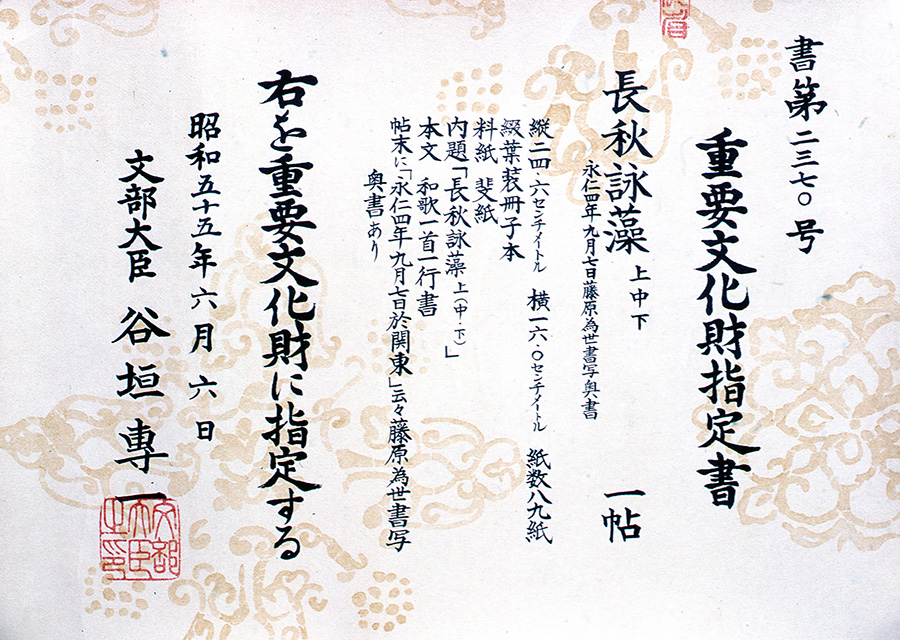 書第二三七〇号
重要文化財指定書
長秋詠藻 上中下 一帖
永仁四年九月七日藤原為世書写奥書
縦二四・六センチメイトル 横一六・〇センチメートル 紙数八九紙
綴葉装冊子本
料紙 斐紙
内題「長秋詠藻 上(中・下)」
本文 和歌一首一行書
帖末に「永仁四年九月七日於関東」云々藤原為世書写
奥書あり
右を重要文化財に指定する
昭和五十五年六月六日
文部大臣 谷垣専一
文部大臣之印